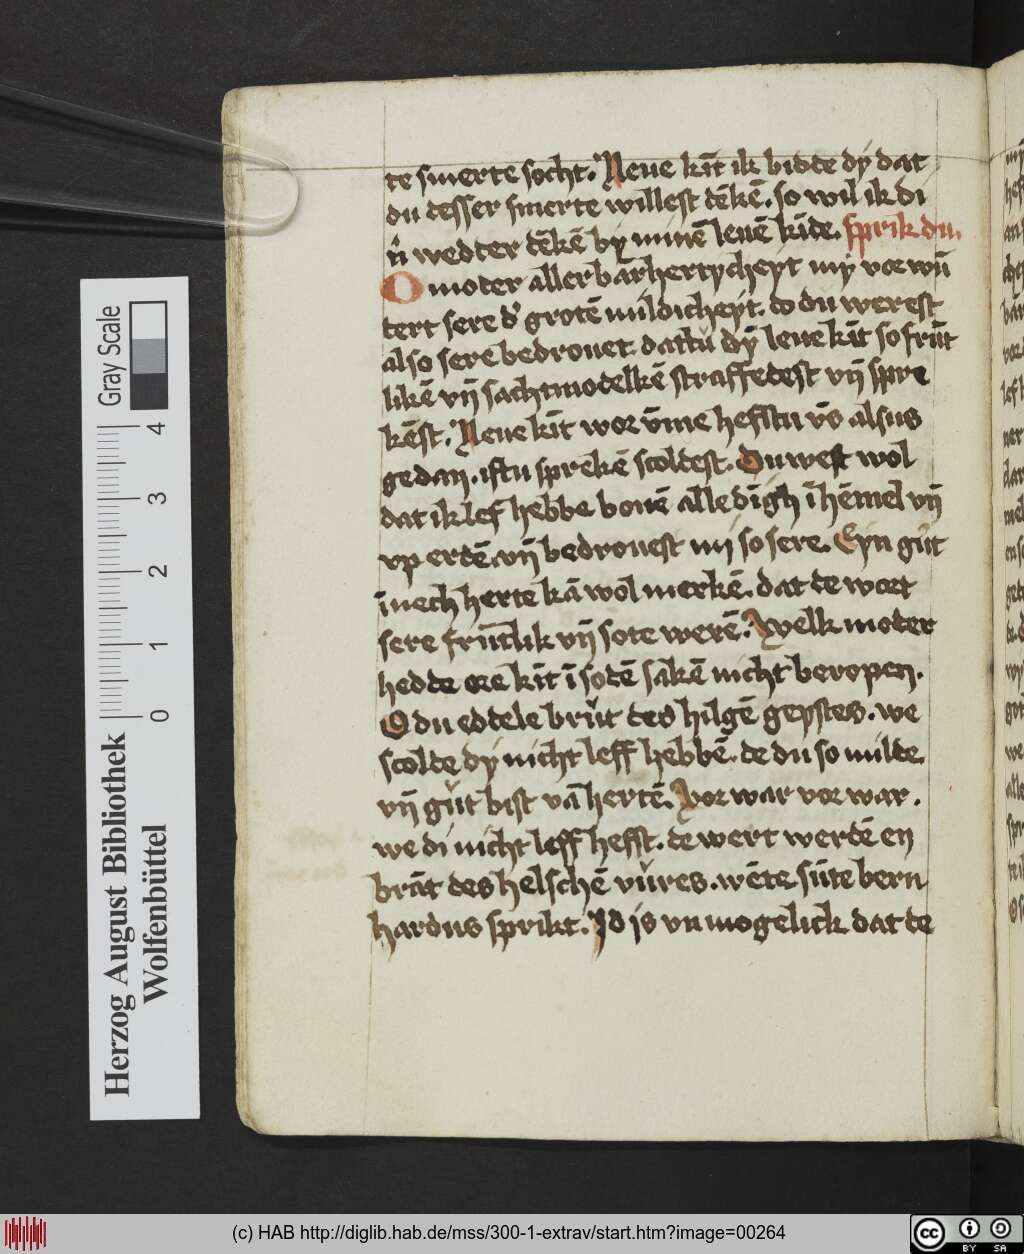 te smerte socht. Leue kīt ik bidde dÿ dat
du desser smerte willest dēkē. so wil ik di
wedder dēkē by minē leuē kīde. sprik du.
O moder aller barhertycheyt my vor wū
dert sere grotē mildicheyt. do du werest
also sere bedrouet. dattu dÿ leue kīt so frūt
likē vn̄ sachtmodelkē straffedest vn̄ spre
kēst. Leue kīt wor v̄me hefstu v̄s alsus
gedan. istu sprekē scoldest. Du west wol
dat ik lef hebbe bouē alle dīgh ī hēmel vn̄
vp erdē. vn̄ bedrouest my so sere. Eyn gůt
īnech herte kā wol merkē. dat de wort
sere frūtlik vn̄ sote werē. Welk moder
hedde ore kīt ī sodē sakē nicht beropen.
O du eddele brůt des hilgē geystes. we
scolde dÿ nicht leff hebbē. de du so milde
vn̄ gůt bist vā hertē. Vor war vor war.
we di nicht leff hefft. de wert werdē en
brāt des helschē vůres. wēte sūte bern
hardus sprikt. Id is vn mogelick dat de
Gray Scale
0 1 2 3 4
Herzog August Bibliothek
Wolfenbüttel
(c) HAB http://diglib.hab.de/mss/300-1-extrav/start.htm?image=00264
cc BY SA